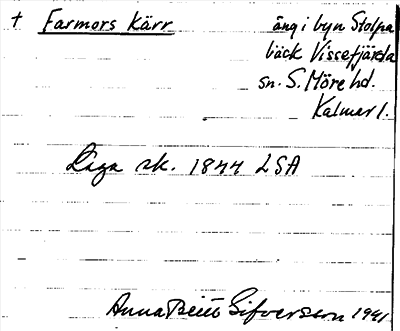 † Farmors Kärr äng i byn Stolpa
bäck Vissefjärda
sn. S. Möre hd.
Kalmar l.
Laga sk. 1844 LSA
Anna Britt Sifversson 1941